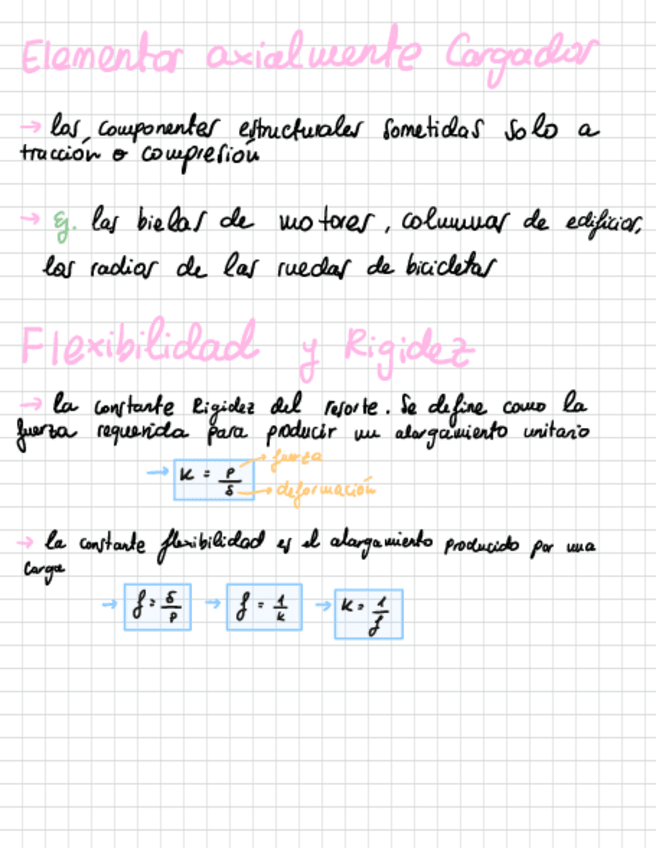 Elementos axialmente Cargados
→ los componentes estructurales sometidas solo a
tracción o compresión
→ Ej. las bielas de motores, columnas de edificios,
los radios de las ruedas de bicicletas
Flexibilidad y Rigidez
→ la constante Rigidez del resorte. Se define como la
fuerza requerida para producir un alargamiento unitario
→ K = P/δ → fuerza → deformación
→ la constante flexibilidad es el alargamiento producido por una
carga
→ f = δ/P → f = 1/k → K = 1/f